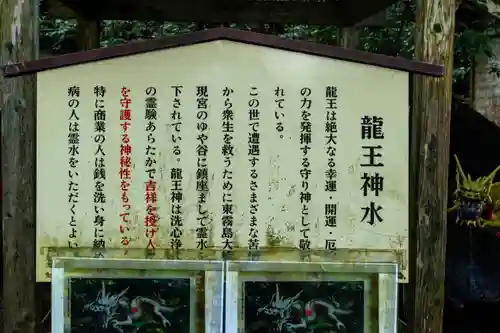 龍王神水
龍王は絶大なる幸運・開運・厄
の力を発揮する守り神として敬
れている。
この世で遭遇するさまざまな苦
から衆生を救うために東霧島大
現宮のゆや谷に鎮座まして霊水
下されている。龍王神は洗心浄
の霊験あらたかで吉祥を授け人
を守護する神秘性をもっている。
特に商業の人は銭を洗い身に納
病の人は霊水をいただくとよい